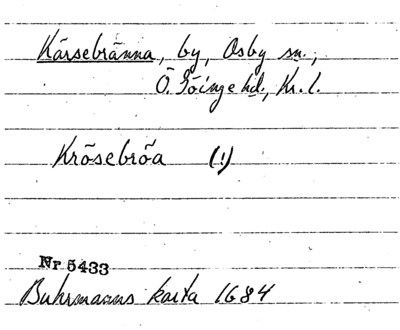 Kärsebränna, by, Osby sn.,
Ö. Göinge hd., Kr. l.
Krösebröa (!)
Nr 5433
Buhrmanns karta 1684